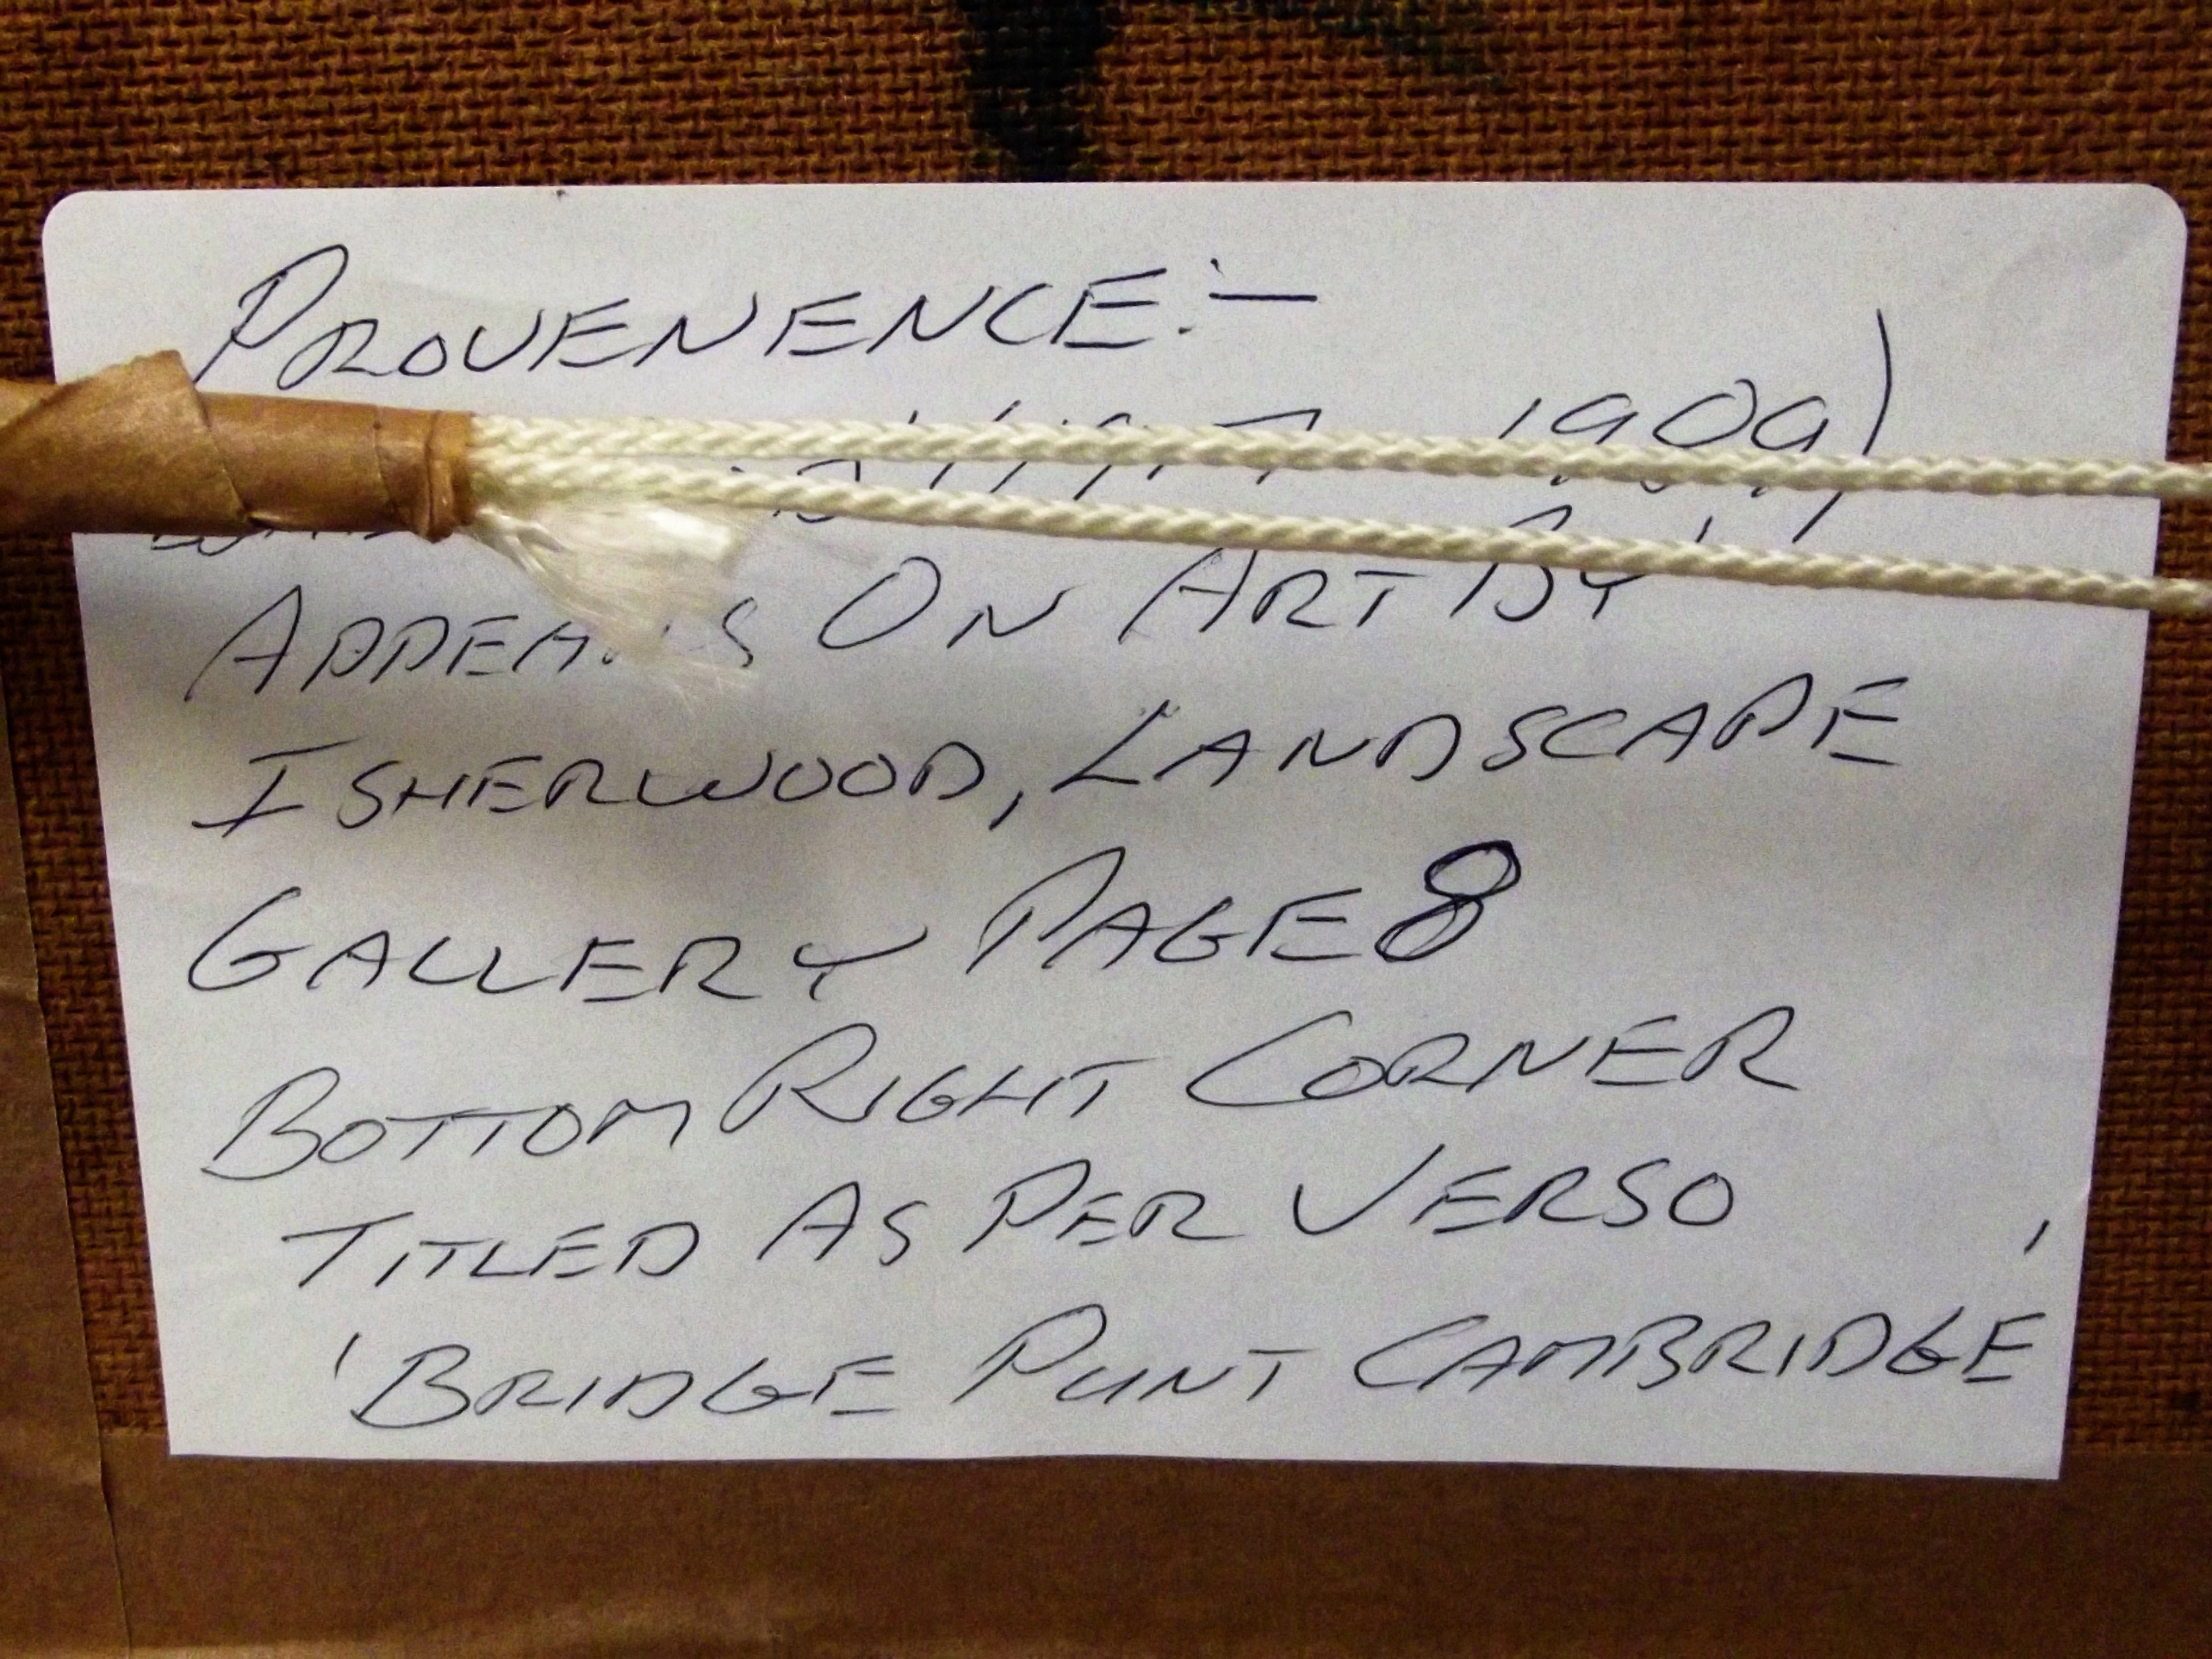 PROVENENCE:-
1909)
APPEARS ON ART BY
ISHERWOOD, LANDSCAPE
GALLERY PAGE 8
BOTTOM RIGHT CORNER
TITLED AS PER VERSO
'BRIDGE PUNT CAMBRIDGE'